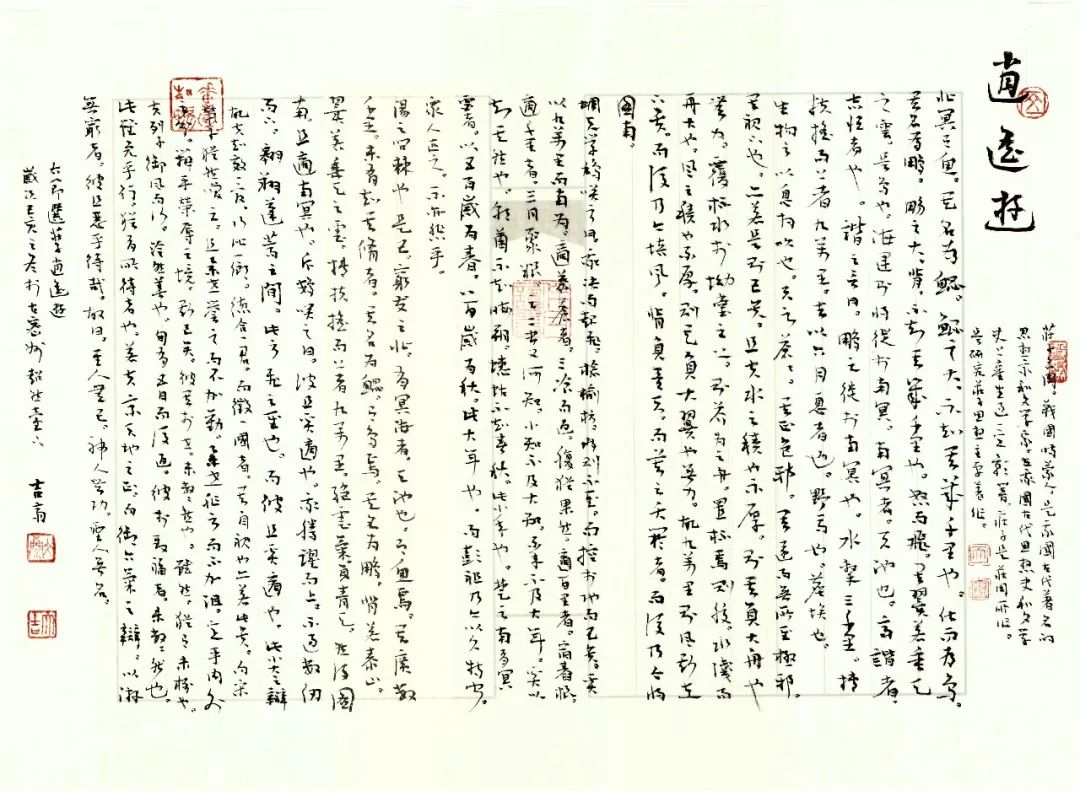 逍遙游
莊子。戰國時蒙人。是我國古代著名的
思想家和文學家。在我國古代思想史和文學
史上產生過一定影響。莊子是莊周所作。
是研究莊子思想主要著作。
北冥有魚。其名為鯤。鯤之大。不知其幾千里也。化而為鳥。
其名為鵬。鵬之大。背。不知其幾千里也。怒而飛。其翼若垂天
之雲。是鳥也。海運則將徙於南冥。南冥者。天池也。齊諧者。
志怪者也。諧之言曰。鵬之徙於南冥也。水擊三千里。摶
扶搖而上者九萬里。去以六月息者也。野馬也。塵埃也。
生物之以息相吹也。天之蒼蒼。其正色邪。其遠而無所至極邪。
其視下也。亦若是則已矣。且夫水之積也不厚。則其負大舟也
無力。覆杯水於坳堂之上。則芥為之舟。置杯焉則膠。水淺而
舟大也。風之積也不厚。則其負大翼也無力。故九萬里則風斯在
下矣。而後乃今培風。背負青天。而莫之夭閼者。而後乃今將
圖南。
蜩與學鳩笑之曰。我決而起飛。搶榆枋。時則不至。而控於地而已矣。奚
以九萬里而南為。適莽蒼者。三飡而返。腹猶果然。適百里者。宿舂糧。
適千里者。三月聚糧。之二蟲又何知。小知不及大知。小年不及大年。奚以
知其然也。朝菌不知晦朔。蟪蛄不知春秋。此小年也。楚之南有冥
靈者。以五百歲為春。八百歲為秋。此大年也。而彭祖乃今以久特聞。
眾人匹之。不亦悲乎。
湯之問棘也是已。窮髮之北。有冥海者。天池也。有魚焉。其廣數
千里。未有知其修者。其名為鯤。有鳥焉。其名為鵬。背若泰山。
翼若垂天之雲。摶扶搖而上者九萬里。絕雲氣負青天。然後圖
南。且適南冥也。斥鴳笑之曰。彼且奚適也。我騰躍而上。不過數仞
而下。翱翔蓬蒿之間。此亦飛之至也。而彼且奚適也。此小大之辯
也。故夫知效一官。行比一鄉。德合一君。而徵一國者。其自視也亦若此矣。而宋
榮子猶然笑之。且舉世譽之而不加勸。舉世非之而不加沮。定乎內外
之分。辯乎榮辱之境。斯已矣。彼其於世。未數數然也。雖然。猶有未樹也。
夫列子御風而行。泠然善也。旬有五日而後返。彼於致福者。未數數然也。
此雖免乎行。猶有所待者也。若夫乘天地之正。而御六氣之辯。以遊
無窮者。彼且惡乎待哉。故曰。至人無己。神人無功。聖人無名。
右節選莊子逍遙遊
歲次己亥之冬於古密州超然臺下 吉